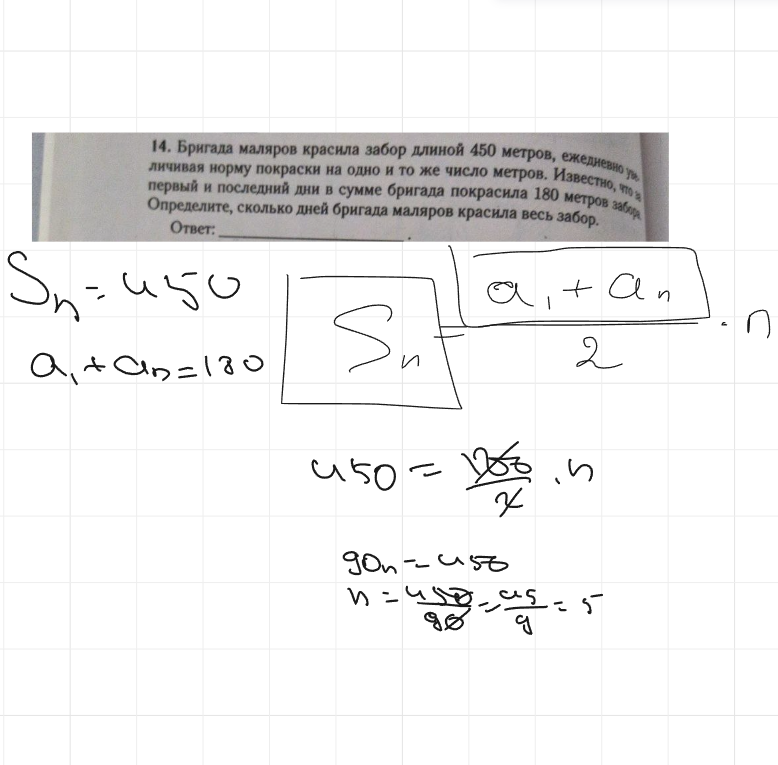 14. Бригада маляров красила забор длиной 450 метров, ежедневно уве-
личивая норму покраски на одно и то же число метров. Известно, что за
первый и последний дни в сумме бригада покрасила 180 метров забора.
Определите, сколько дней бригада маляров красила весь забор.
Ответ: ____________ .
Sn = 450
a1 + an = 180
Sn = (a1 + an)/2 · n
450 = 180/2 · n
90n = 450
n = 450/90 = 45/9 = 5